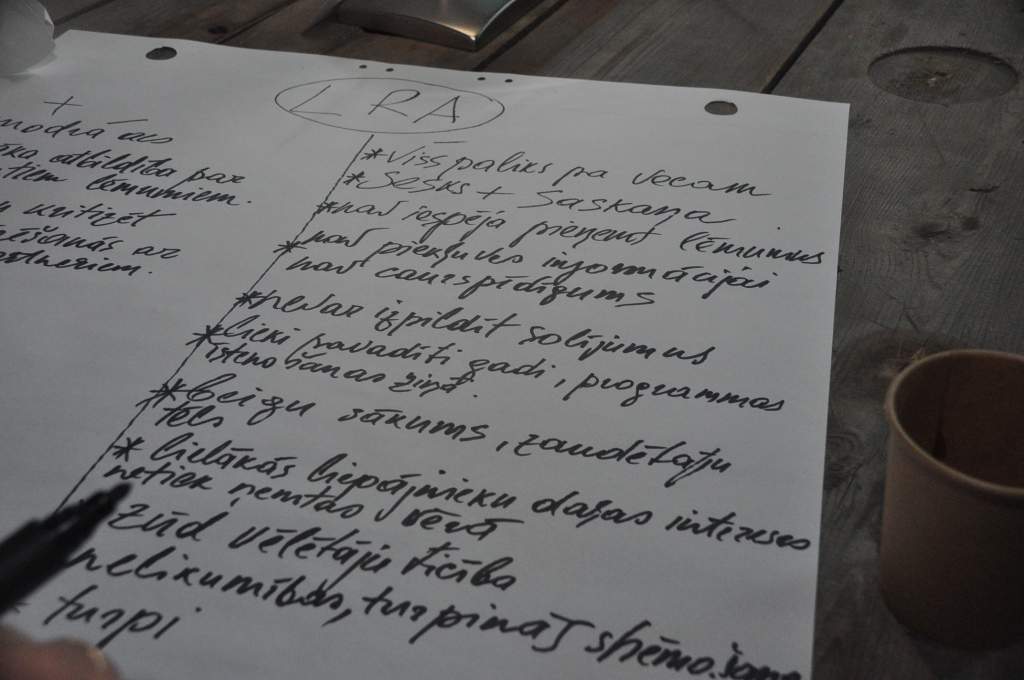 LRA
+
atbildība par
lēmumiem.
kritizēt
ar
* Viss paliks pa vecam
* Sesks + Saskaņa
* nav iespēja pieņemt lēmumus
* nav piekļuves informācijai
nav caurspīdīgums
* nevar izpildīt solījumus
* lieki pavadīti gadi, programmas
īstenošanas ziņā.
* beigu sākums, zaudētāju
tēls
* lielākās liepājnieku daļas intereses
netiek ņemtas vērā
zūd vēlētāju ticība
nelikumības, turpinās
turpi